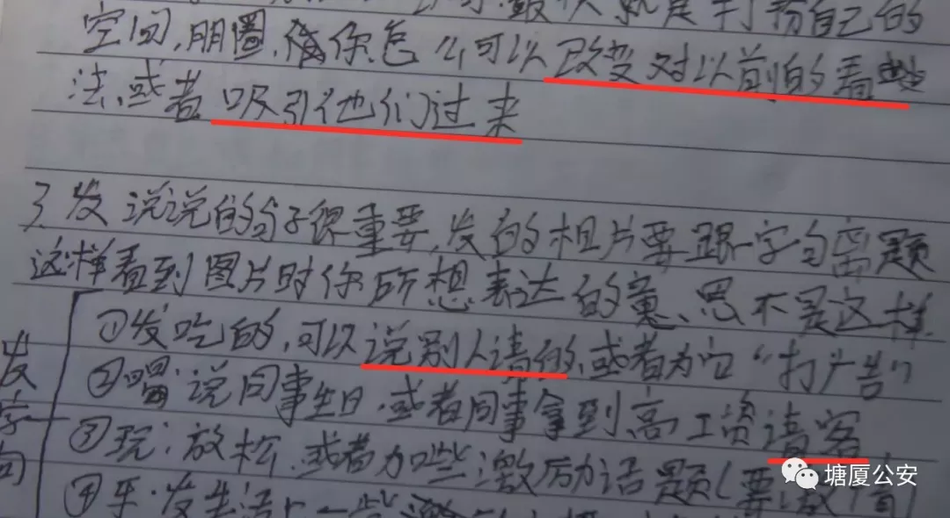 就是打扮自己的
空间,朋圈,候你怎么可以改变对以前的看
法,或者吸引他们过来
3.发说说的句子很重要,发的相片要跟字句离题
这样看到图片时你所想表达的意思不是这样
发字句
①发吃的,可以说别人请的,或者为它“打广告”
②唱:说同事生日,或者同事拿到高工资请客
③玩:放松,或者加些激励话题(要
④ 发生活上一些
塘厦公安